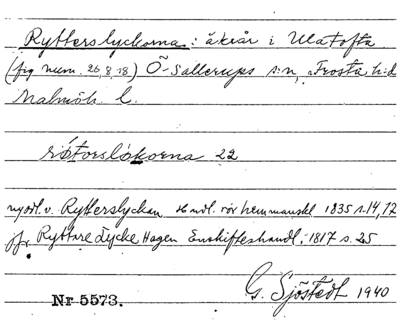 Rytterslyckorna: åkrar i Ulatofta
(fig num. 26, 8, 18) Ö-Sallerups s:n, Frosta h:d
Malmöh. l.
røtorsløkorna 22
nyodl. v. Rytterslyckan Hndl. rör hemmanskl 1835 s. 14, 12
jfr Ryttare Lycke Hagen Enskifteshandl. 1817 s. 25
G. Sjöstedt 1940
Nr 5573.